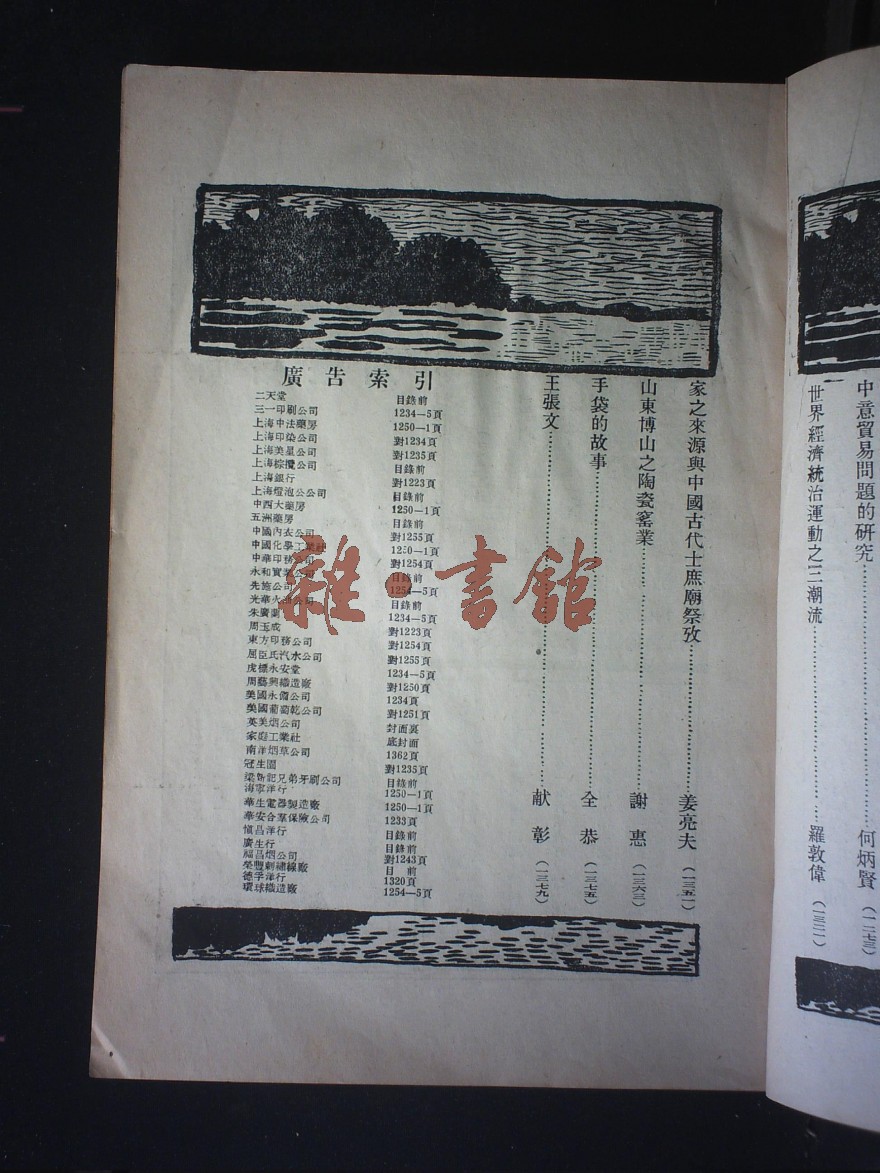 中意貿易問題的研究……何炳賢(一二七三)
世界經濟統治運動之三潮流……羅敦偉(一三二一)
家之來源與中國古代士庶廟祭攷……姜亮夫(一三五一)
山東博山之陶瓷窰業……謝惠(一三六三)
手袋的故事……全恭(一三七五)
王張文……献彰(一三七九)
廣告索引
二天堂 目錄前
三一印刷公司 1234—5頁
上海中法藥房 1250—1頁
上海印染公司 對1234頁
上海美星公司 對1235頁
上海棕欖公司 目錄前
上海銀行 對1223頁
上海燈泡公公司 目錄前
中西大藥房 1250—1頁
五洲藥房 目錄前
中國內衣公司 對1255頁
中國化學工業社 1250—1頁
中華印務公司 對1254頁
永和實業公司 目錄前
先施公司 1254—5頁
光華火油公司 目錄前
朱廣蘭 1234—5頁
周玉成 對1223頁
東方印務公司 對1254頁
屈臣氏汽水公司 對1255頁
虎標永安堂 1234—5頁
周藝興織造廠 對1250頁
美國永備公司 1234頁
美國葡萄乾公司 對1251頁
英美烟公司 封面裏
家庭工業社 底封面
南洋烟草公司 1362頁
冠生園 對1235頁
梁新記兄弟牙刷公司 目錄前
海寧洋行 1250—1頁
華生電器製造廠 1250—1頁
華安合羣保險公司 1233頁
愼昌洋行 目錄前
廣生行 目錄前
福昌烟公司 對1243頁
榮豐刺繡線廠 目 前
德孚洋行 1320頁
環球織造廠 1254—5頁
雜·書館